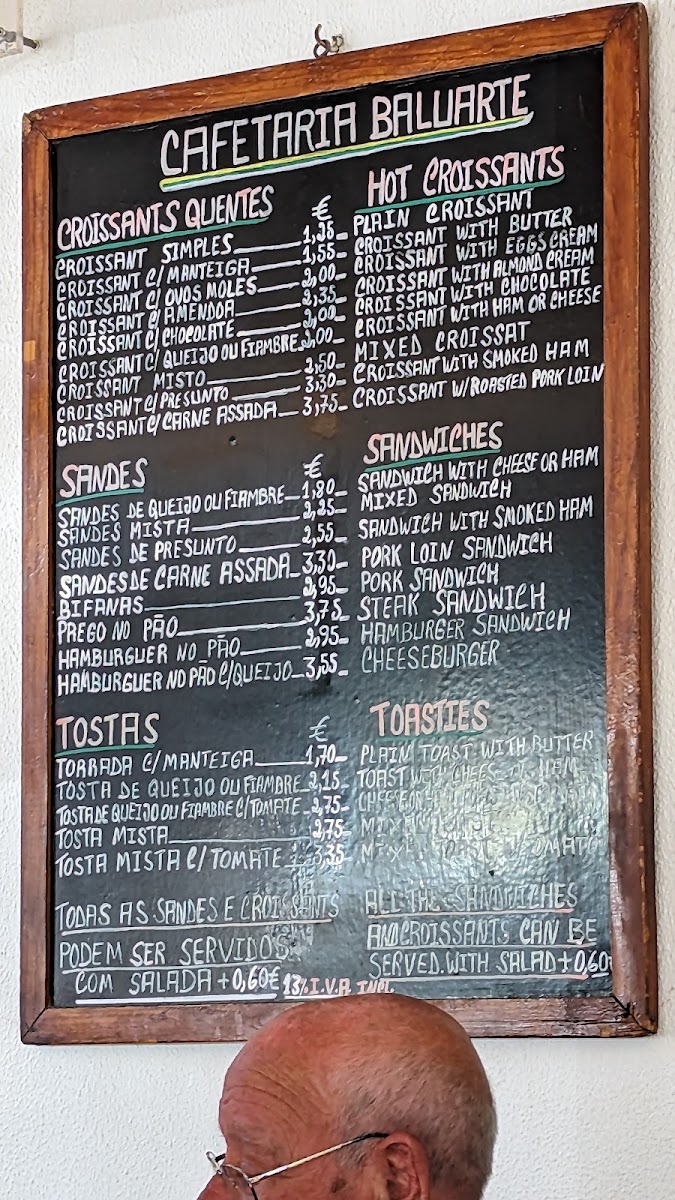 CAFETARIA BALUARTE
CROISSANTS QUENTES €
CROISSANT SIMPLES 1,35
CROISSANT C/MANTEIGA 1,55
CROISSANT C/OVOS MOLES 2,00
CROISSANT C/AMENDOA 2,35
CROISSANT C/CHOCOLATE 2,00
CROISSANT C/QUEIJO OU FIAMBRE 2,00
CROISSANT MISTO 2,50
CROISSANT C/PRESUNTO 3,30
CROISSANT C/CARNE ASSADA 3,75
HOT CROISSANTS
PLAIN CROISSANT
CROISSANT WITH BUTTER
CROISSANT WITH EGGS CREAM
CROISSANT WITH ALMOND CREAM
CROISSANT WITH CHOCOLATE
CROISSANT WITH HAM OR CHEESE
MIXED CROISSAT
CROISSANT WITH SMOKED HAM
CROISSANT W/ROASTED PORK LOIN
SANDES €
SANDES DE QUEIJO OU FIAMBRE 1,80
SANDES MISTA 2,25
SANDES DE PRESUNTO 2,55
SANDES DE CARNE ASSADA 3,30
BIFANAS 2,95
PREGO NO PÃO 3,75
HAMBURGUER NO PÃO 2,95
HAMBURGUER NO PÃO C/QUEIJO 3,55
SANDWICHES
SANDWICH WITH CHEESE OR HAM
MIXED SANDWICH
SANDWICH WITH SMOKED HAM
PORK LOIN SANDWICH
PORK SANDWICH
STEAK SANDWICH
HAMBURGER SANDWICH
CHEESEBURGER
TOSTAS €
TORRADA C/MANTEIGA 1,70
TOSTA DE QUEIJO OU FIAMBRE 2,15
TOSTA DE QUEIJO OU FIAMBRE C/TOMATE 2,75
TOSTA MISTA 2,75
TOSTA MISTA C/TOMATE 3,35
TOASTIES
PLAIN TOAST WITH BUTTER
TOAST WITH CHEESE
MIXED
TODAS AS SANDES E CROISSANTS
PODEM SER SERVIDOS
COM SALADA + 0,60€ 13% I.V.A. INCL.
ALL THE SANDWICHES
AND CROISSANTS CAN BE
SERVED WITH SALAD + 0,60